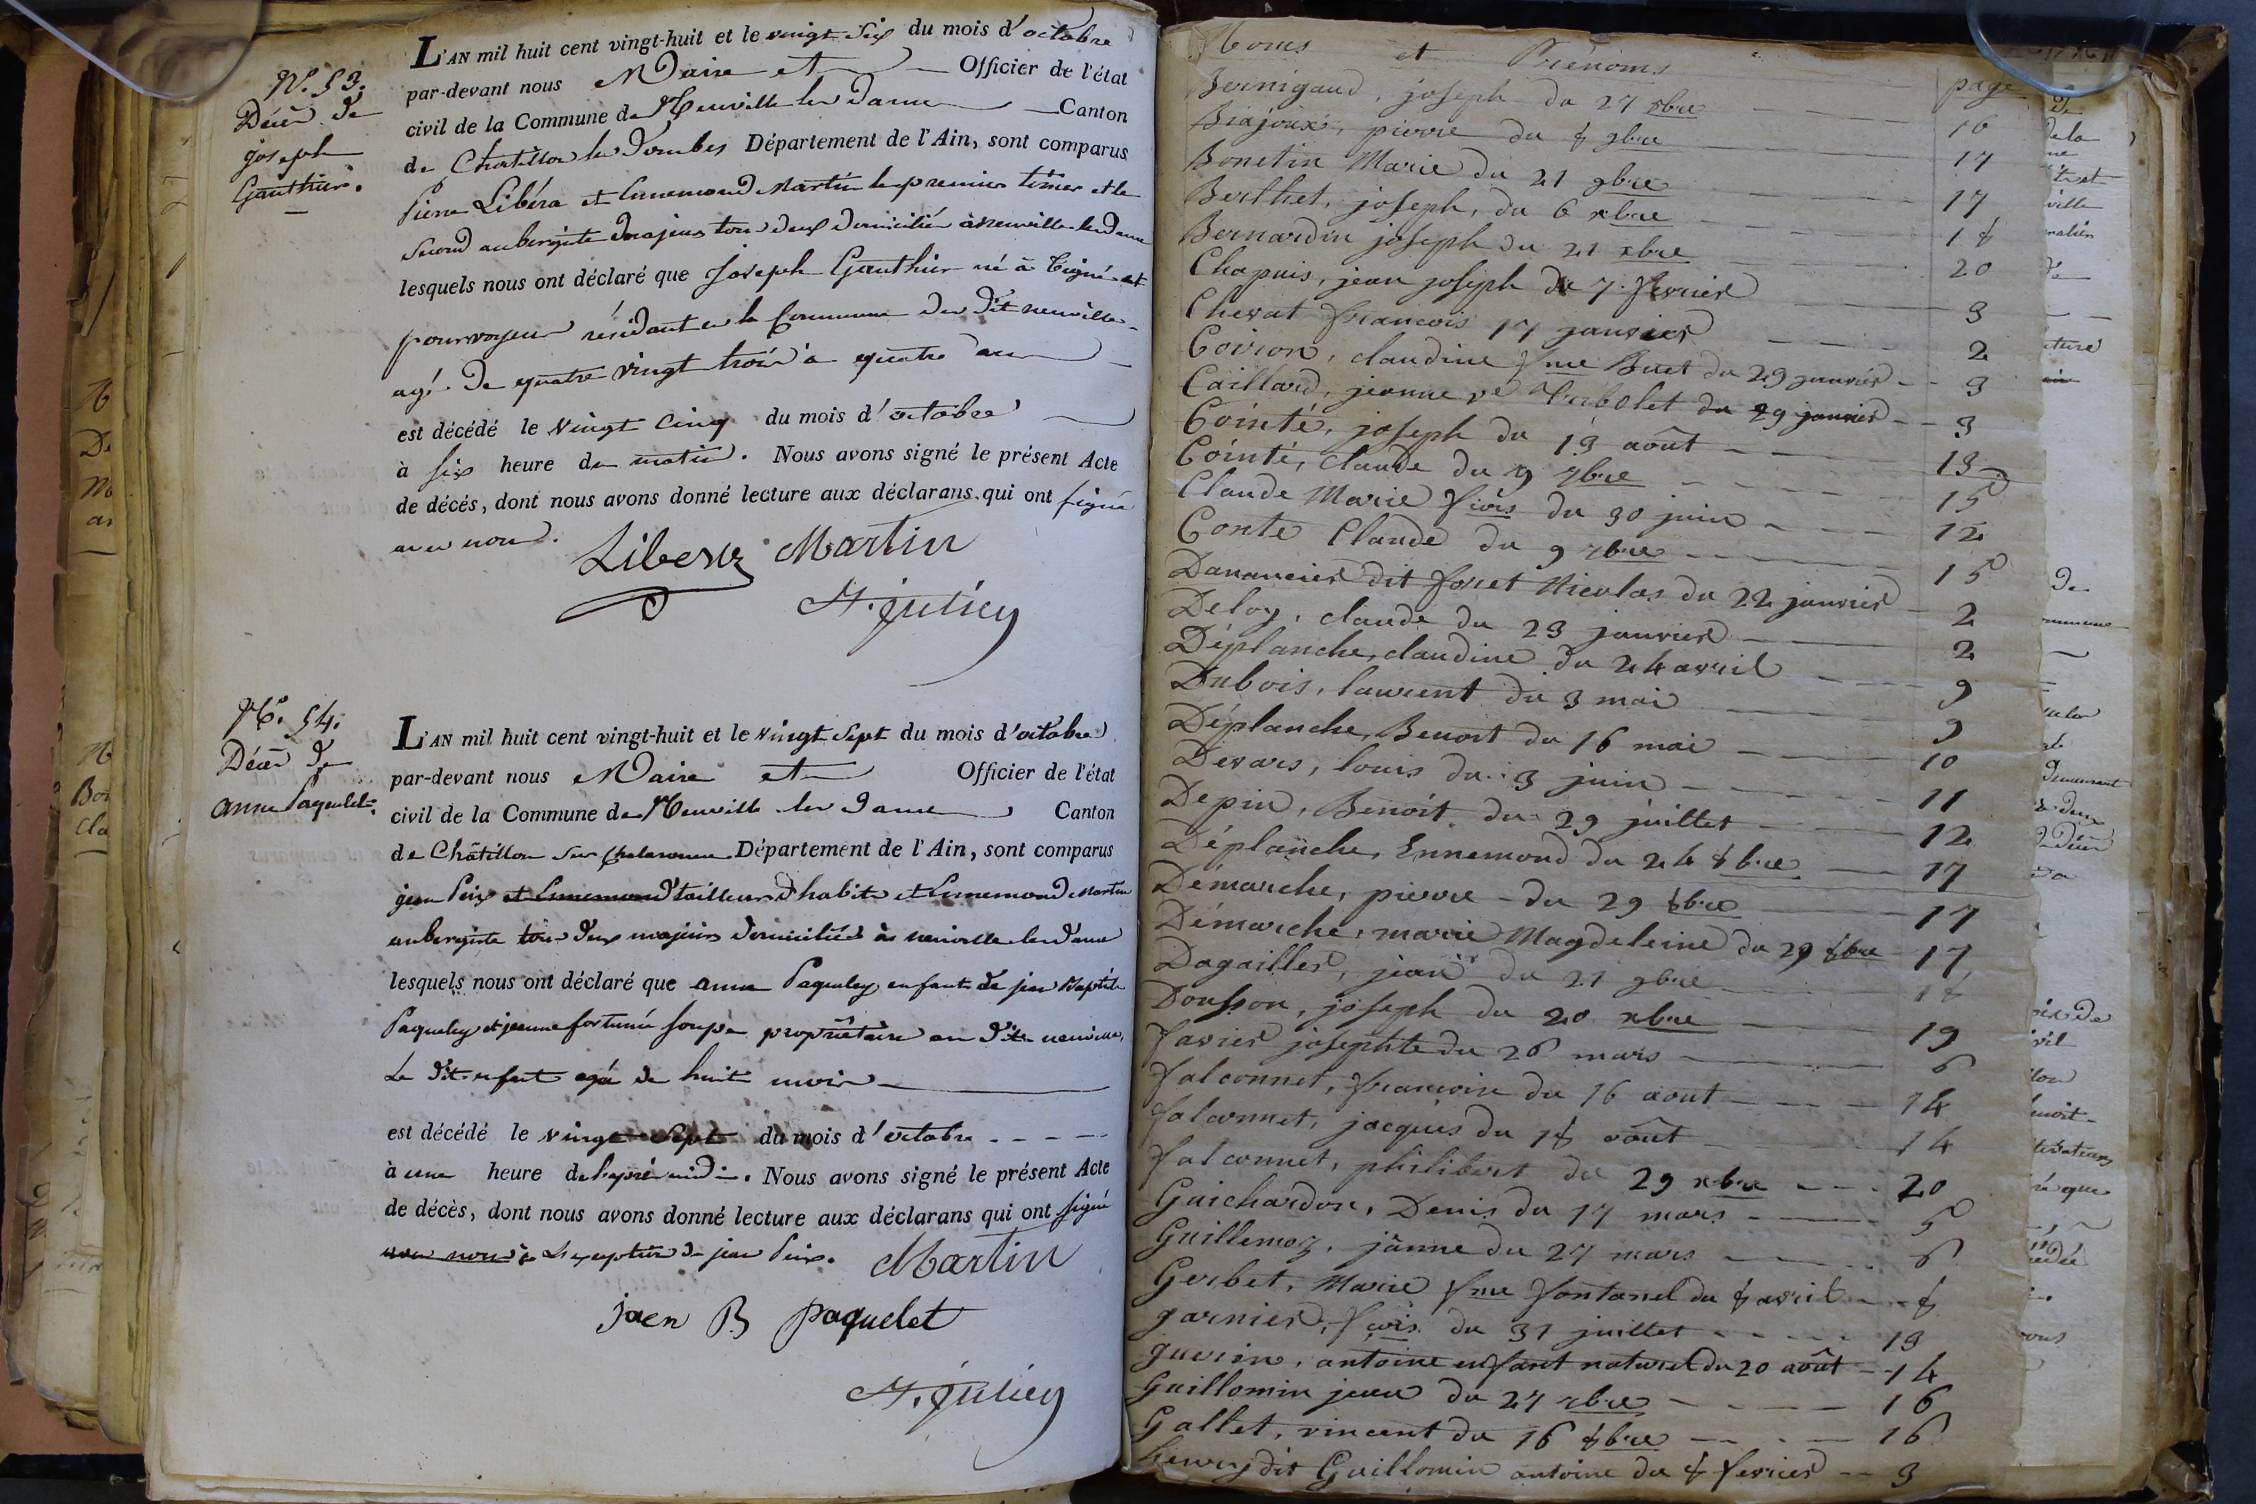 N.º 53.
Décès de
joseph
Gauthier.
L'AN mil huit cent vingt-huit et le vingt Six du mois d'octobre
par-devant nous Maire et Officier de l'état
civil de la Commune de Neuville les dames Canton
de Chatillon les Dombes Département de l'Ain, sont comparus
Pierre Libéra et Ennemond Martin le premier et le
Second aubergiste majeurs tous deux domiciliés à neuville les dames
lesquels nous ont déclaré que Joseph Gauthier né à
pourvoyeur résidant en la Commune du dit neuville
agé de quatre vingt trois à quatre ans
est décédé le vingt cinq du mois d'octobre
à six heure du matin. Nous avons signé le présent Acte
de décés, dont nous avons donné lecture aux déclarans qui ont signé
avec nous.
Libera Martin
N.º 54.
Décès de
anne Paquelet
L'AN mil huit cent vingt-huit et le vingt Sept du mois d'octobre
par-devant nous Maire et Officier de l'état
civil de la Commune de Neuville les dames Canton
de Châtillon sur chalaronne Département de l'Ain, sont comparus
jean et Ennemond tailleur d'habits et Ennemond Martin
aubergiste tous deux majeurs domiciliés à neuville les dames
lesquels nous ont déclaré que anne Paquelet, enfant de jean Baptiste
Paquelet et jeanne fortunée propriétaire au dit neuville,
Le dit enfant agé de huit mois
est décédé le vingt Sept du mois d'octobre
à une heure de l'après midi. Nous avons signé le présent Acte
de décès, dont nous avons donné lecture aux déclarans qui ont signé
avec nous à L'exception de jean Martin
jaen B paquelet
Noms et Prénoms page
Bernigaud, joseph du 27 8bre 16
Biajoux, pierre du 8 9bre 17
Bonetin Marie du 21 9bre 17
Berthet, joseph, du 6 xbre 18
Bernardin joseph du 21 xbre 20
Chapuis, jean joseph du 7 fevrier 3
Chevat francois 17 janvier 2
Coiron, claudine fme Buet du 29 janvier 3
Caillard, jeanne ve du 29 janvier 3
Cointé, joseph du 13 août 13
Cointé, Claude du 9 7bre 15
Claude Marie fçois du 30 juin 12
Conte Claude du 9 7bre 15
Danancier dit foret Nicolas du 22 janvier 2
Deloy, claude du 23 janvier 2
Déplanche, claudine du 24 avril 9
Dubois, laurent du 3 mai 9
Déplanche, Benoit du 16 mai 10
Devars, louis du 3 juin 11
Depin, Benoit du 29 juillet 12
Déplanche, Ennemond du 24 8bre 17
Démarche, pierre du 29 8bre 17
Démarche, marie Magdeleine du 29 8bre 17
Dagallier, jean du 21 9bre 18
Dousson, joseph du 20 xbre 19
favier josephte du 26 mars 6
falconnet, francoise du 16 aout 14
falconnet, jacques du 18 août 14
falconnet, philibert du 29 xbre 20
Guichardon, Denis du 17 mars 5
Guillemoz, jânne du 27 mars 6
Gerbet, Marie fme fontanel du 8 avril 8
garnier, fçois du 31 juillet 13
guerin, antoine enfant naturel du 20 août 14
Guillomin jean du 27 7bre 16
Gallet, vincent du 16 8bre 16
henry dit Guillomin antoine du 8 fevrier 3